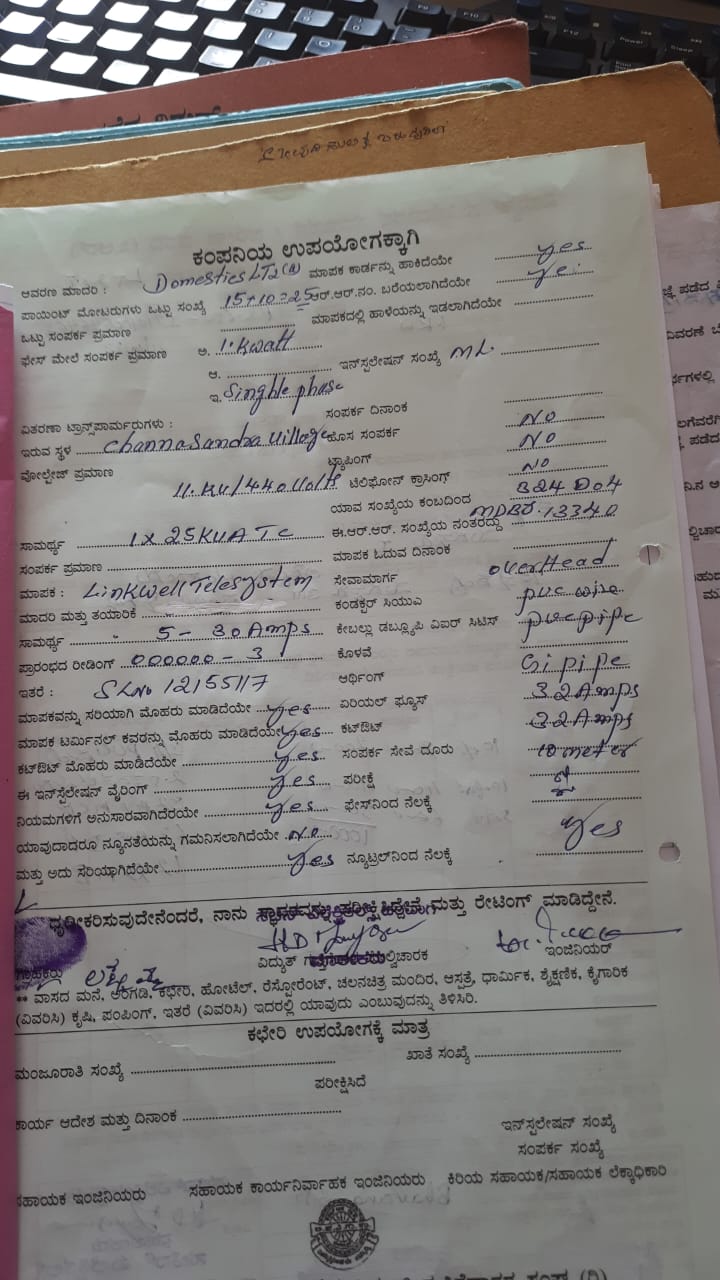 ಕಂಪನಿಯ ಉಪಯೋಗಕ್ಕಾಗಿ
ಆವರಣ ಮಾದರಿ : Domestics LT2(a) ಮಾಪಕ ಕಾರ್ಡನ್ನು ಹಾಕಿದೆಯೇ yes
ಪಾಯಿಂಟ್ ಮೋಟರುಗಳು ಒಟ್ಟು ಸಂಖ್ಯೆ 15+10=25 ಆರ್.ಆರ್.ನಂ. ಬರೆಯಲಾಗಿದೆಯೇ ye.
ಒಟ್ಟು ಸಂಪರ್ಕ ಪ್ರಮಾಣ ಮಾಪಕದಲ್ಲಿ ಹಾಳೆಯನ್ನು ಇಡಲಾಗಿದೆಯೇ
ಫೇಸ್ ಮೇಲೆ ಸಂಪರ್ಕ ಪ್ರಮಾಣ ಅ. 1.Kwatt
ಆ. ಇನ್‌ಸ್ಟಲೇಷನ್ ಸಂಖ್ಯೆ ML.
ಇ. Singhle phase
ಸಂಪರ್ಕ ದಿನಾಂಕ
ವಿತರಣಾ ಟ್ರಾನ್ಸ್‌ಪಾರ್ಮರುಗಳು :
ಇರುವ ಸ್ಥಳ Channasandra Village ಹೊಸ ಸಂಪರ್ಕ NO
ವೋಲ್ಟೇಜ್ ಪ್ರಮಾಣ ಟ್ಯಾಪಿಂಗ್ NO
11.KV/440 Volts ಟೆಲಿಫೋನ್ ಕ್ರಾಸಿಂಗ್ NO
ಯಾವ ಸಂಖ್ಯೆಯ ಕಂಬದಿಂದ 324 D04
ಸಾಮರ್ಥ್ಯ 1x25KVA TC ಈ.ಆರ್.ಆರ್. ಸಂಖ್ಯೆಯ ನಂತರದ್ದು 13340
ಸಂಪರ್ಕ ಪ್ರಮಾಣ ಮಾಪಕ ಓದುವ ದಿನಾಂಕ
ಮಾಪಕ : LinkWell Telesystem ಸೇವಾಮಾರ್ಗ overHead
ಮಾದರಿ ಮತ್ತು ತಯಾರಿಕೆ ಕಂಡಕ್ಟರ್ ಸಿಯುವಿ pvc wire
ಸಾಮರ್ಥ್ಯ 5-30Amps ಕೇಬಲ್ಲು ಡಬ್ಲ್ಯೂಪಿ ವಿಐರ್ ಸಿಟಿಸ್ pvcpipe
ಪ್ರಾರಂಭದ ರೀಡಿಂಗ್ 000000-3 ಕೊಳವೆ
ಇತರೆ : SLNo 12155117 ಆರ್ಥಿಂಗ್ Gi pipe
ಮಾಪಕವನ್ನು ಸರಿಯಾಗಿ ಮೊಹರು ಮಾಡಿದೆಯೇ yes ಏರಿಯಲ್ ಫ್ಯೂಸ್ 32Amps
ಮಾಪಕ ಟರ್ಮಿನಲ್ ಕವರನ್ನು ಮೊಹರು ಮಾಡಿದೆಯೇ yes ಕಟ್‌ಔಟ್ 32Amps
ಕಟ್‌ಔಟ್ ಮೊಹರು ಮಾಡಿದೆಯೇ yes ಸಂಪರ್ಕ ಸೇವೆ ದೂರು 10 meter
ಈ ಇನ್‌ಸ್ಟೆಲೇಷನ್ ವೈರಿಂಗ್ yes ಪರೀಕ್ಷೆ
ನಿಯಮಗಳಿಗೆ ಅನುಸಾರವಾಗಿದೆರಯೇ yes ಫೇಸ್‌ನಿಂದ ನೆಲಕ್ಕೆ
ಯಾವುದಾದರೂ ನ್ಯೂನತೆಯನ್ನು ಗಮನಿಸಲಾಗಿದೆಯೇ NO Yes
ಮತ್ತು ಅದು ಸರಿಯಾಗಿದೆಯೇ yes ನ್ಯೂಟ್ರಲ್‌ನಿಂದ ನೆಲಕ್ಕೆ
ಧೃಡೀಕರಿಸುವುದೇನೆಂದರೆ, ನಾನು ಸ್ಥಾವರವನ್ನು ಪರೀಕ್ಷಿಸಿದ್ದೇನೆ ಮತ್ತು ರೇಟಿಂಗ್ ಮಾಡಿದ್ದೇನೆ.
ಗ್ರಾಹಕರು ವಿದ್ಯುತ್ ಇಂಜಿನಿಯರ್
** ವಾಸದ ಮನೆ, ಅಂಗಡಿ, ಕಛೇರಿ, ಹೋಟೆಲ್, ರೆಸ್ಟೋರೆಂಟ್, ಚಲನಚಿತ್ರ ಮಂದಿರ, ಆಸ್ಪತ್ರೆ, ಧಾರ್ಮಿಕ, ಶೈಕ್ಷಣಿಕ, ಕೈಗಾರಿಕ
(ವಿವರಿಸಿ) ಕೃಷಿ, ಪಂಪಿಂಗ್, ಇತರೆ (ವಿವರಿಸಿ) ಇದರಲ್ಲಿ ಯಾವುದು ಎಂಬುವುದನ್ನು ತಿಳಿಸಿರಿ.
ಕಛೇರಿ ಉಪಯೋಗಕ್ಕೆ ಮಾತ್ರ
ಮಂಜೂರಾತಿ ಸಂಖ್ಯೆ ಖಾತೆ ಸಂಖ್ಯೆ
ಪರೀಕ್ಷಿಸಿದೆ
ಕಾರ್ಯ ಆದೇಶ ಮತ್ತು ದಿನಾಂಕ
ಇನ್‌ಸ್ಟಲೇಷನ್ ಸಂಖ್ಯೆ
ಸಂಪರ್ಕ ಸಂಖ್ಯೆ
ಸಹಾಯಕ ಇಂಜಿನಿಯರು ಸಹಾಯಕ ಕಾರ್ಯನಿರ್ವಾಹಕ ಇಂಜಿನಿಯರು ಕಿರಿಯ ಸಹಾಯಕ/ಸಹಾಯಕ ಲೆಕ್ಕಾಧಿಕಾರಿ